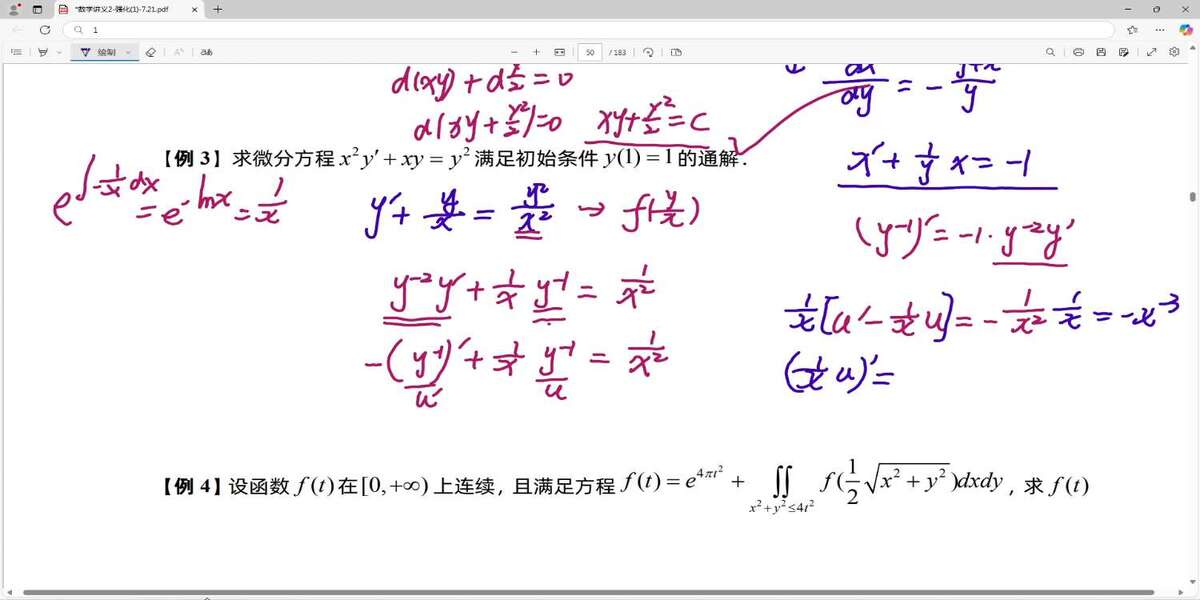 *数学讲义2-强化(1)-7.21.pdf
1
绘制
50 / 183
d(xy) + d x²/2 = 0
d(xy + x²/2) = 0 xy + x²/2 = C
dx/dy = - (y+x)/y
【例 3】求微分方程 x²y′ + xy = y² 满足初始条件 y(1) = 1 的通解.
x′ + 1/y x = -1
e^∫-1/x dx = e^-lnx = 1/x
y′ + y/x = y²/x² → f(y/x)
(y⁻¹)′ = -1 · y⁻²y′
y⁻²y′ + 1/x y⁻¹ = 1/x²
1/x [u′ - 1/x u] = - 1/x² 1/x = -x⁻³
-(y⁻¹)′ + 1/x y⁻¹ = 1/x²
u′ u
(1/x u)′ =
【例 4】设函数 f(t) 在 [0,+∞) 上连续，且满足方程 f(t) = e^{4πt²} + ∬_{x²+y²≤4t²} f(1/2 √(x²+y²))dxdy，求 f(t)